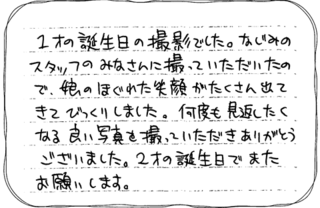 1才の誕生日の撮影でした。なじみの
スタッフのみなさんに撮っていただいたの
で、娘のほぐれた笑顔がたくさん出て
きてびっくりしました。何度も見返したく
なる良い写真を撮っていただきありがとう
ございました。2才の誕生日でまた
お願いします。